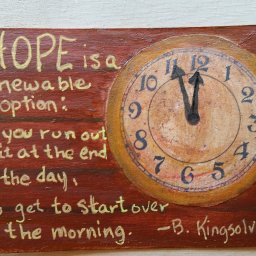 HOPE is a
newable
option:
you run out
it at the end
the day,
get to start over
the morning.
-B. Kingsolv
11 12 1
10 2
9 3
8 4
7 6 5